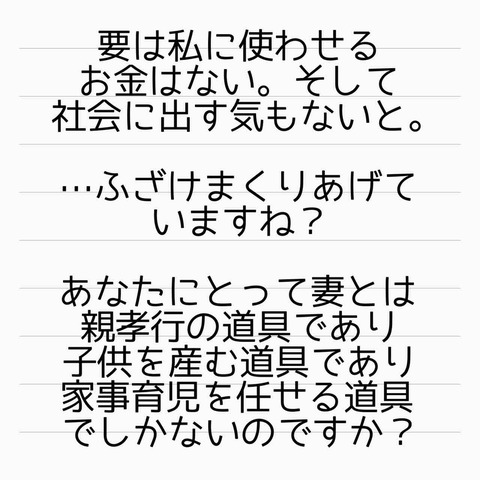 要は私に使わせる
お金はない。そして
社会に出す気もないと。
…ふざけまくりあげて
いますね？
あなたにとって妻とは
親孝行の道具であり
子供を産む道具であり
家事育児を任せる道具
でしかないのですか？